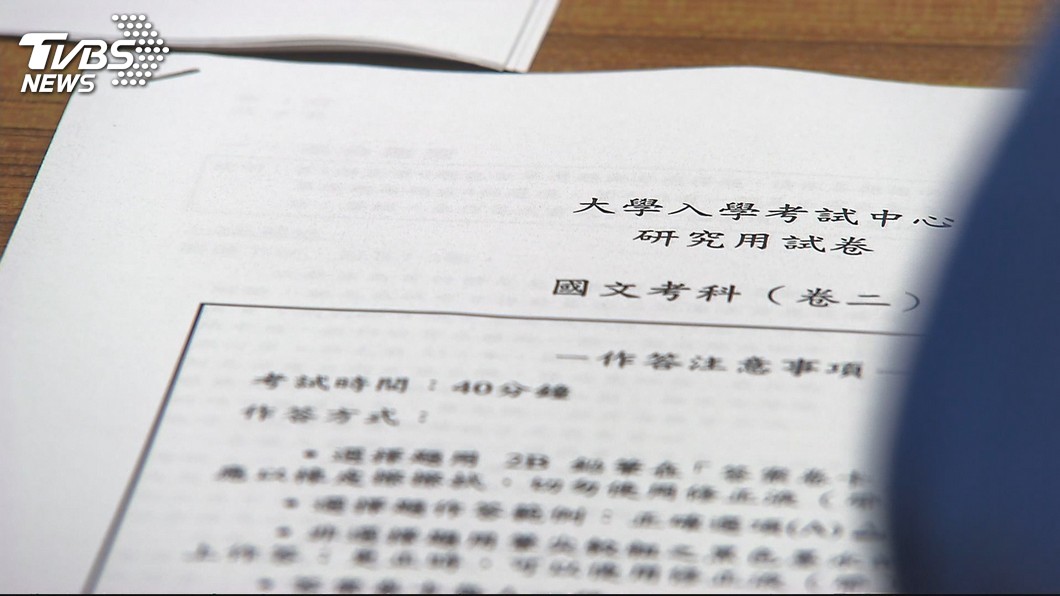 TVBS
NEWS
大學入學考試中心
研究用試卷
國文考科（卷二）
－作答注意事項－
考試時間：40分鐘
作答方式：
• 選擇題用 2B 鉛筆在「答案卷
應以橡皮擦擦拭，切勿使用修正液（
• 選擇題作答範例：正確選項(A)
• 非選擇題用筆尖較粗之黑色墨
上作答；更正時，可以使用修正液（